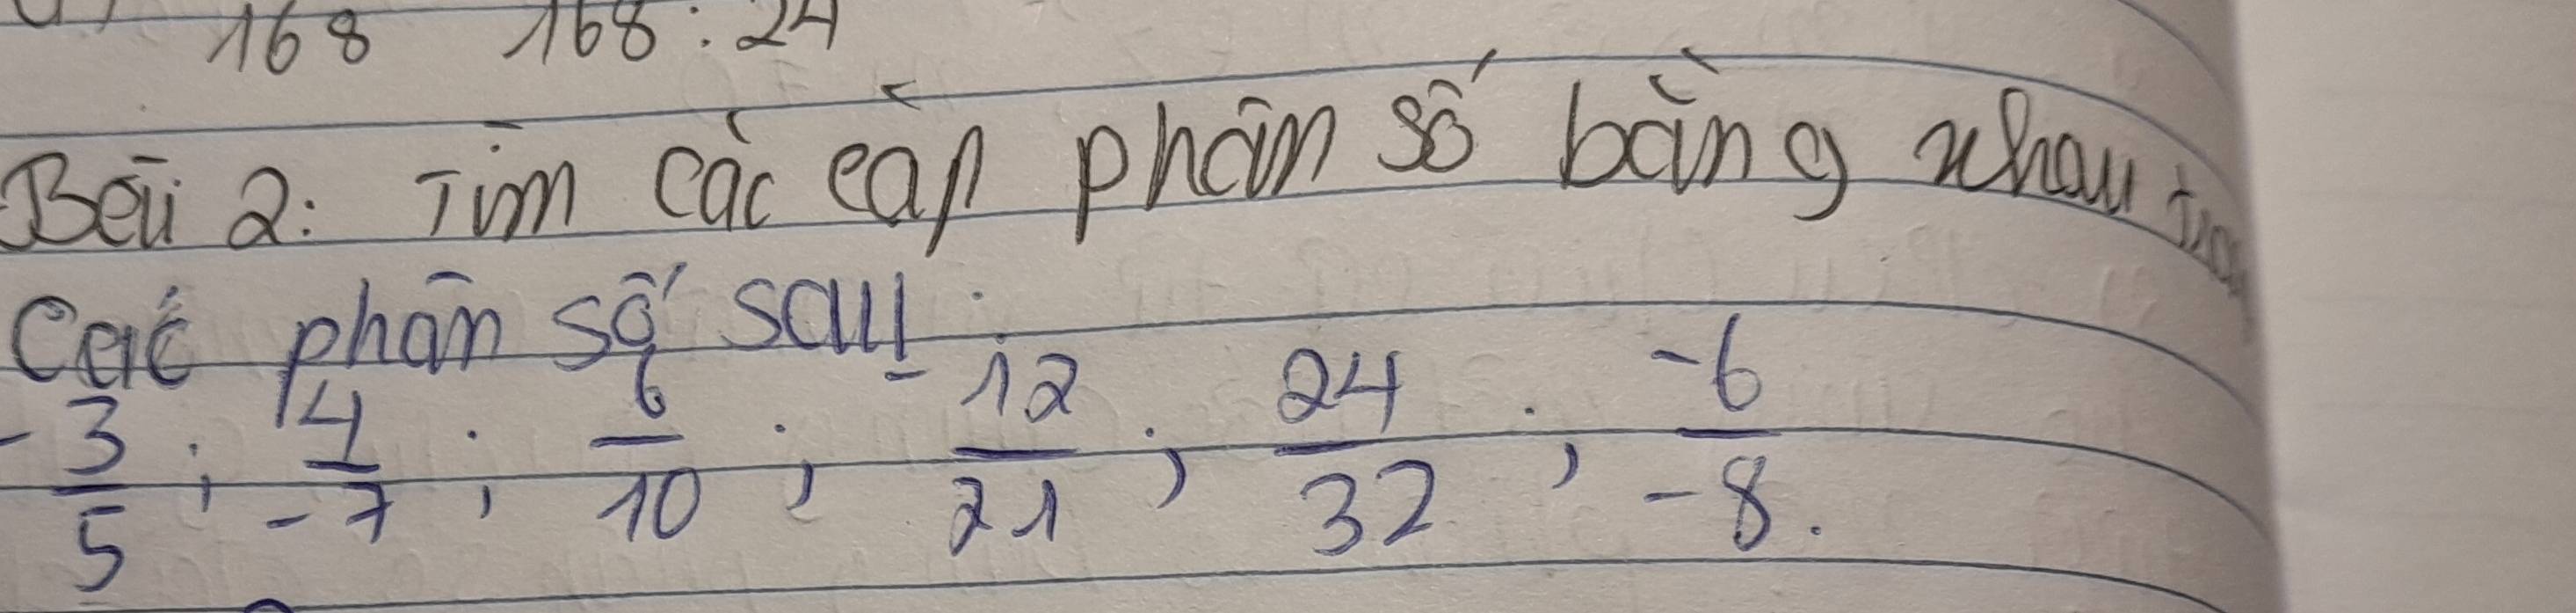 168 168 : 24
Bài 2: Tìm các cặp phân số bằng nhau
Các phân số sau:
-3/5 ; 4/-7 ; 6/10 ; 12/21 ; 24/32 ; -6/-8.